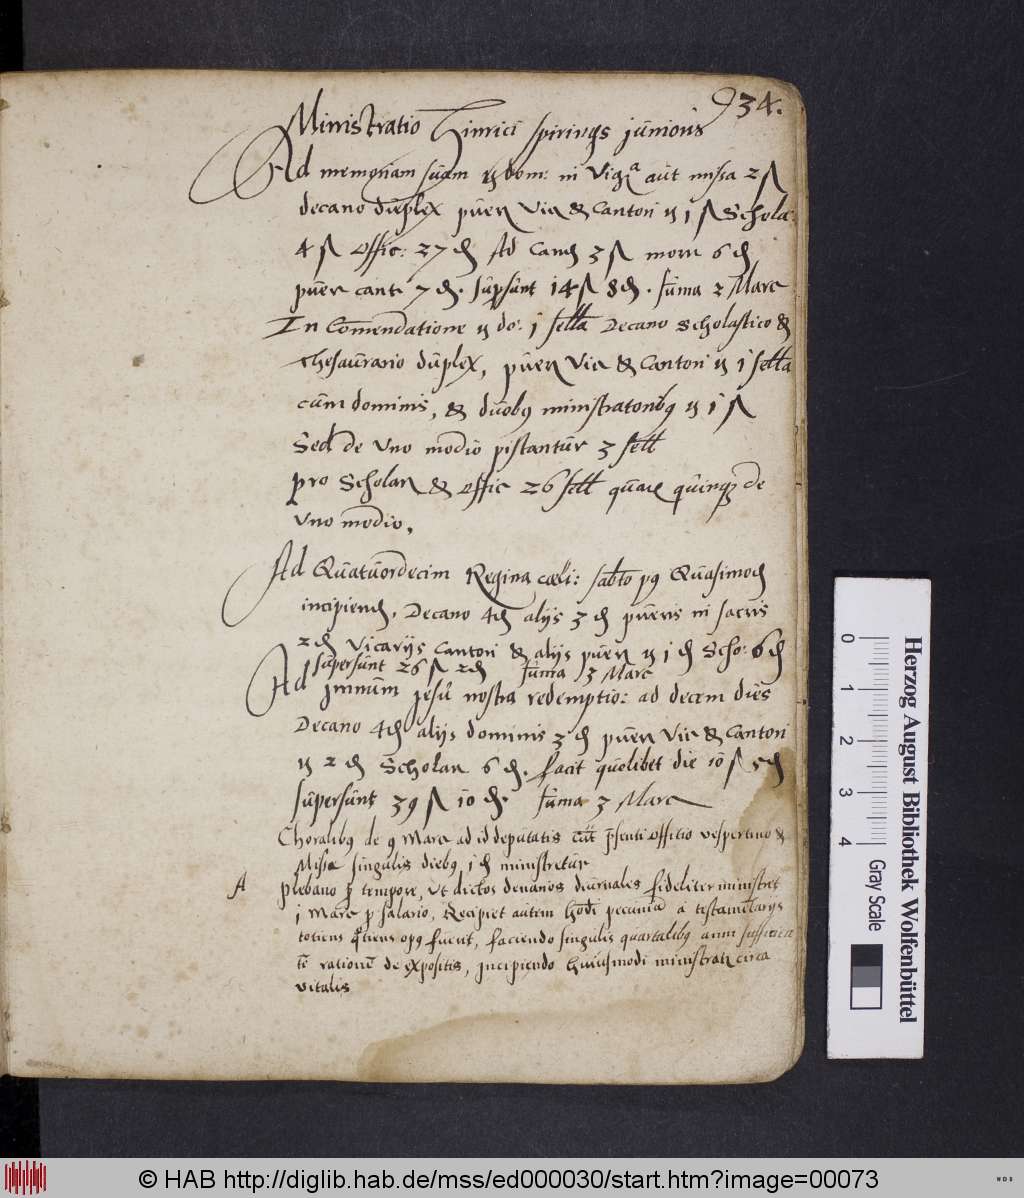 934.
Ministratio Hinrici spirings junioris
Ad memoriam suam dom: in Vigª aut missa 2 ß
decano duplex puer Vic & Cantori 1 ß Schola
4 ß Offic: 27 ₰ Ad Cand 3 ß 6 ₰
puer cant 7 ₰. supsunt 14 ß 8 ₰. suma 2 Marc
In Comendatione do: 1 sella Decano Scholastico &
thesaurario duplex, puer Vic & Cantori 1 sella
cum dominis, & duobq ministratoribq 1 ß
Sed de Uno modio pistantur 3 sell
pro Scholar & Offic 26 sell quinq de
Uno modio,
Ad Quatuordecim Regina cœli: sabto pq Quasimod
incipiend. Decano 4 ₰ alijs 3 ₰ pueris in sacris
2 ₰ Vicarijs Cantori & alijs puer 1 ₰ Scho: 6 ₰
supersunt 26 ß 2 ₰ suma 3 Marc
Ad jmnum jesu nostra redemptio: ad decem dies
Decano 4 ₰ alijs dominis 3 ₰ puer Vic & Cantori
2 ₰ Scholar 6 ₰. facit quolibet die 10 ß 5 ₰
supersunt 39 ß 10 ₰. suma 3 Marc
Choralibq de 9 Marc ad id deputatis psenti offitio vespertino &
Missæ singulis diebq 1 ₰ ministretur
A plebano p tempore, Ut dictos denarios diurnales fideliter ministret
1 Marc p salario, Recipiet autem pecuniã a testamētarijs
totiens qtiens opq fuerit, faciendo singulis quartalibq anni
tē rationē de expositis, jncipiendo huiusmodi circa
vitalis
0 1 2 3 4
Gray Scale
Herzog August Bibliothek Wolfenbüttel
© HAB http://diglib.hab.de/mss/ed000030/start.htm?image=00073